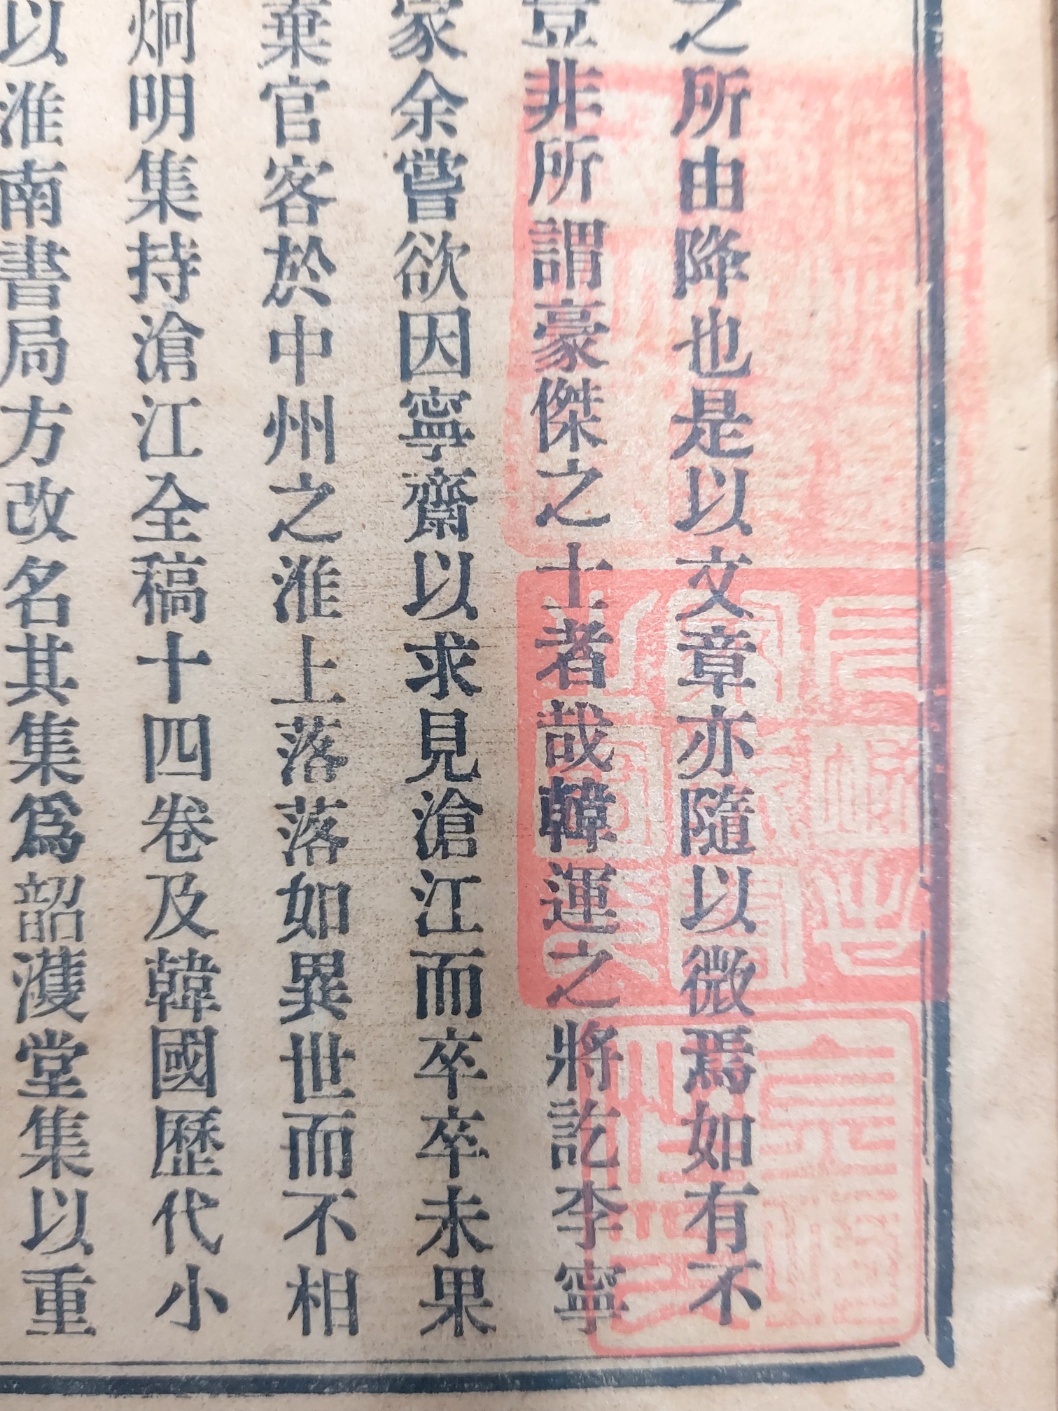 之所由降也是以文章亦隨以微焉如有不
豈非所謂豪傑之士者哉韓運之將訖李寧
家余嘗欲因寧齋以求見滄江而卒卒未果
棄官客於中州之淮上落落如異世而不相
炯明集持滄江全稿十四卷及韓國歷代小
以淮南書局方改名其集爲韶濩堂集以重